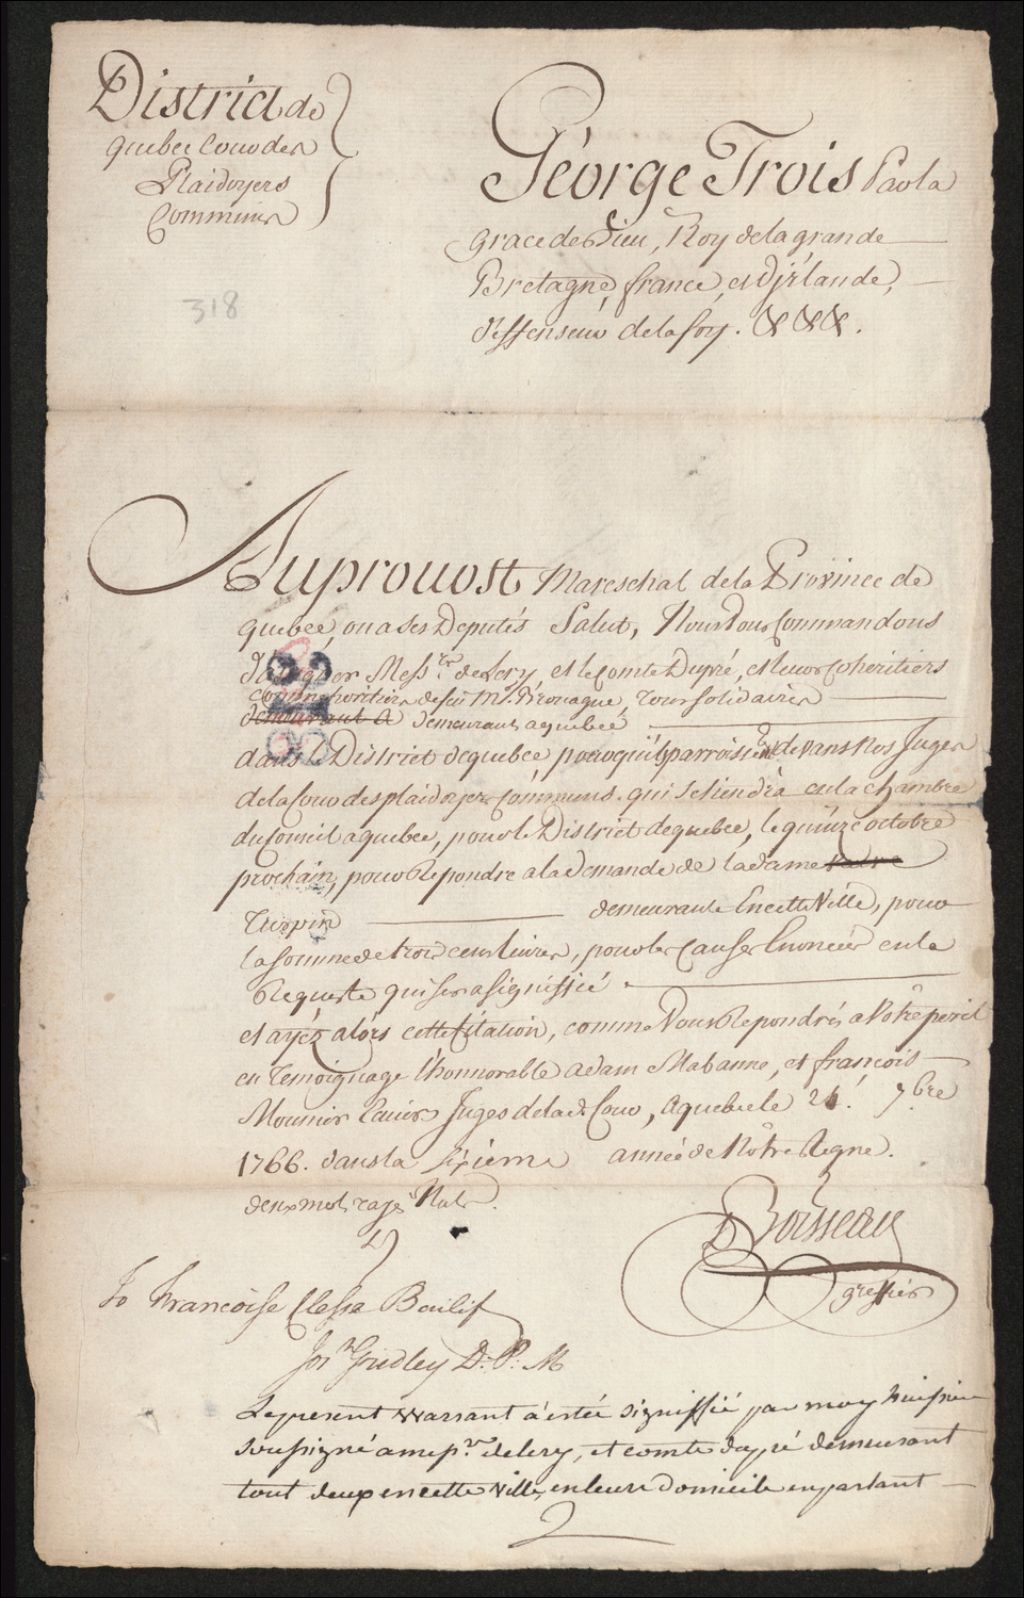 District de
quebec Cour des
Plaidoyers
Communs
318
George Trois Par la
grace de Dieu, Roy de la grande
Bretagne, france, et D'jrlande,
deffenseur de la foy. &&&.
Au prouost Mareschal de la Province de
quebec, ou a ses Deputés Salut, Nous Vous Commandons
Mess.rs de Lery, et le comte Dupré, et leurs Coheritiers
comme heritiers de feu Mr. Brouague, Tous solidaires
demeurant A demeurant a quebec
dans le District de quebec, pour qu'ils parroissent devant Nos Juges
de la Cour des plaidoyers Communs. qui se tiendra en la chambre
du Conseil a quebec, pour le District de quebec, le quinze octobre
prochain, pour Repondre a la demande de la dame
Turpin demeurante En cette Ville, pour
la somme de trois cens livres, pour les Causes Enoncées en la
Requeste qui sera signiffiée
et ayéz alors cette Citation, comme Vous Repondrés a Vôtre peril
en Temoignage l'honnorable adam Mabanne, et françois
Mounier Ecuiers Juges de la de Cour, a quebec le 24. 7bre
1766. dans la sixieme année de Nôtre Regne.
deux mots rayé Nuls
Boisseau
greffier
To Francoise Clesse Bailif
Jos.h Gridley D. P. M
Le present warrant a estée signiffié par moy huissier
soussigné a mess.rs delery, et comte dupré demeurant
tout deux en cette ville, en leurs domicile en parlant